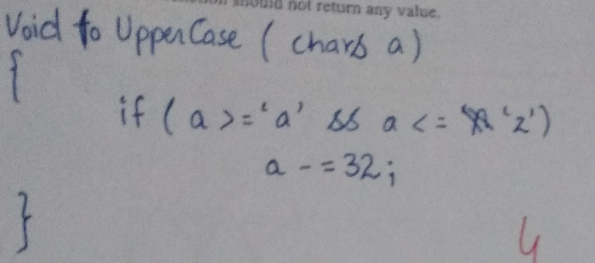 should not return any value.
Void to UpperCase ( char& a)
{
if ( a >= 'a' && a <= 'z')
a -= 32;
}
4